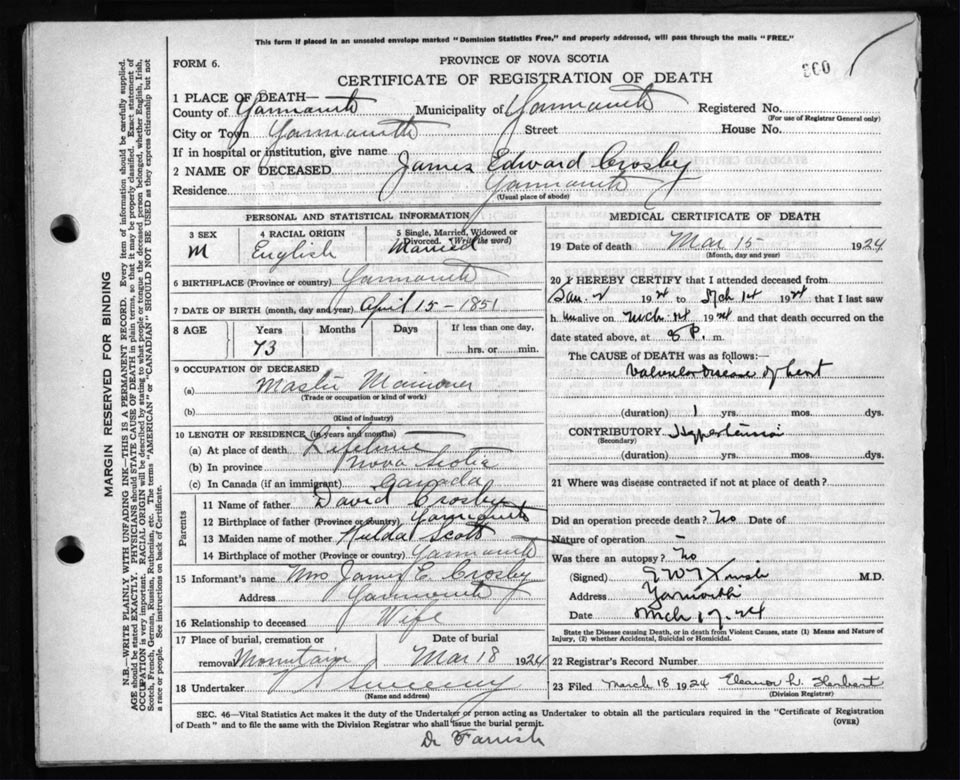 This form if placed in an unsealed envelope marked "Dominion Statistics Free," and properly addressed, will pass through the mails "FREE."
FORM 6.
PROVINCE OF NOVA SCOTIA
CERTIFICATE OF REGISTRATION OF DEATH
360
1 PLACE OF DEATH—
County of Yarmouth Municipality of Yarmouth Registered No.
(For use of Registrar General only)
City or Town Yarmouth Street House No.
If in hospital or institution, give name
2 NAME OF DECEASED James Edward Crosby
Residence Yarmouth
(Usual place of abode)
PERSONAL AND STATISTICAL INFORMATION
3 SEX 4 RACIAL ORIGIN 5 Single, Married, Widowed or Divorced. (Write the word)
M English Married
6 BIRTHPLACE (Province or country) Yarmouth
7 DATE OF BIRTH (month, day and year) April 15 - 1851
8 AGE Years Months Days If less than one day,
73 hrs. or min.
9 OCCUPATION OF DECEASED
(a) Master Mariner
(Trade or occupation or kind of work)
(b)
(Kind of industry)
10 LENGTH OF RESIDENCE (in years and months)
(a) At place of death Lifetime
(b) In province Nova Scotia
(c) In Canada (if an immigrant) Canada
Parents
11 Name of father David Crosby
12 Birthplace of father (Province or country) Yarmouth
13 Maiden name of mother Hulda Scott
14 Birthplace of mother (Province or country) Yarmouth
15 Informant's name Mrs James E. Crosby
Address Yarmouth
16 Relationship to deceased Wife
17 Place of burial, cremation or Date of burial
removal Mountain Mar 18 1924
18 Undertaker V S Sweeny
(Name and address)
MEDICAL CERTIFICATE OF DEATH
19 Date of death Mar 15 1924
(Month, day and year)
20 I HEREBY CERTIFY that I attended deceased from
Jan. 2 1924 to Mch 14 1924 that I last saw
h im alive on Mch. 14 1924 and that death occurred on the
date stated above, at 8 P. m.
The CAUSE of DEATH was as follows:—
Valvular Disease of heart
(duration) 1 yrs. mos. dys.
CONTRIBUTORY Hypertension
(Secondary)
(duration) yrs. mos. dys.
21 Where was disease contracted if not at place of death?
Did an operation precede death? No Date of
Nature of operation —
Was there an autopsy? No
(Signed) M.D.
Address Yarmouth
Date Mch 17. 24
State the Disease causing Death, or in death from Violent Causes, state (1) Means and Nature of Injury, (2) whether Accidental, Suicidal or Homicidal.
22 Registrar's Record Number
23 Filed March 18 1924 Eleanor L. Herbert
(Division Registrar)
SEC. 46—Vital Statistics Act makes it the duty of the Undertaker or person acting as Undertaker to obtain all the particulars required in the "Certificate of Registration
of Death" and to file the same with the Division Registrar who shall issue the burial permit. (OVER)
Dr Farrish
MARGIN RESERVED FOR BINDING
N.B.—WRITE PLAINLY WITH UNFADING INK—THIS IS A PERMANENT RECORD. Every item of information should be carefully supplied.
AGE should be stated EXACTLY. PHYSICIANS should STATE CAUSE OF DEATH in plain terms, so that it may be properly classified. Exact statement of
OCCUPATION is very important. RACIAL ORIGIN will be described by stating to what people or tongue the deceased person belonged, whether English, Irish,
Scotch, French, German, Russian, Ruthenian, etc. The terms "AMERICAN" or "CANADIAN" SHOULD NOT BE USED as they express citizenship but not
a race or people. See instructions on back of Certificate.